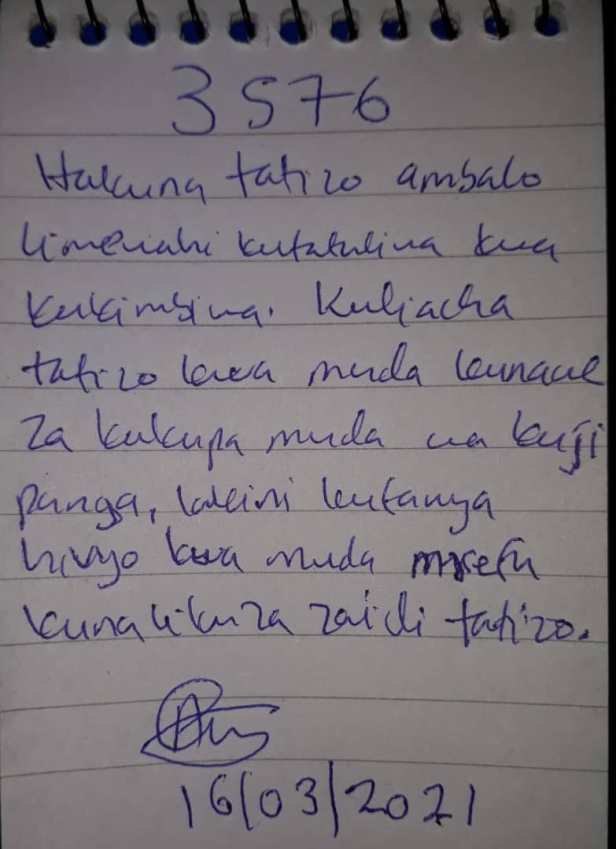 3576
Hakuna tatizo ambalo
limewahi kutatuliwa kwa
kukimbiwa. Kuliacha
tatizo kwa muda kunawe
za kukupa muda wa kuji
panga, lakini kufanya
hivyo kwa muda mrefu
kunalikuza zaidi tatizo.
16/03/2021